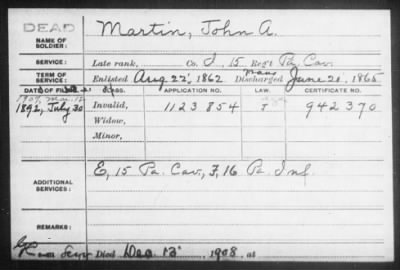 DEAD
NAME OF SOLDIER: Martin, John A.
SERVICE: Late rank, Co. I, 15 Regt Pa. Cav.
TERM OF SERVICE: Enlisted Aug 22, 1862 Discharged June 21, 1865
DATE OF FILING. CLASS. APPLICATION NO. LAW. CERTIFICATE NO.
1892, July 30 Invalid, 1123854 942370
Widow,
Minor,
ADDITIONAL SERVICES: E, 15 Pa. Cav, F, 16 Pa. Inf.
REMARKS:
Died Dec 13, 1908, at